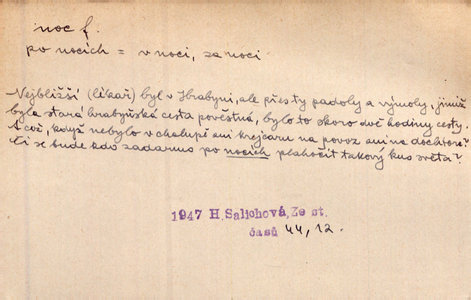 noc f.
po nocích = v noci, za noci
Nejbližší (lékař) byl v Hrabyni, ale přes ty padoly a výmoly, jimiž
byla stará hrabyňská cesta pověstná, bylo to skoro dvě hodiny cesty.
A což, když nebylo v chalupě ani krejcaru na povoz ani na dochtora?
Či se bude kdo zadarmo po nocích plahočit takový kus světa?
1947 H. Salichová, Ze st.
časů 44, 12.